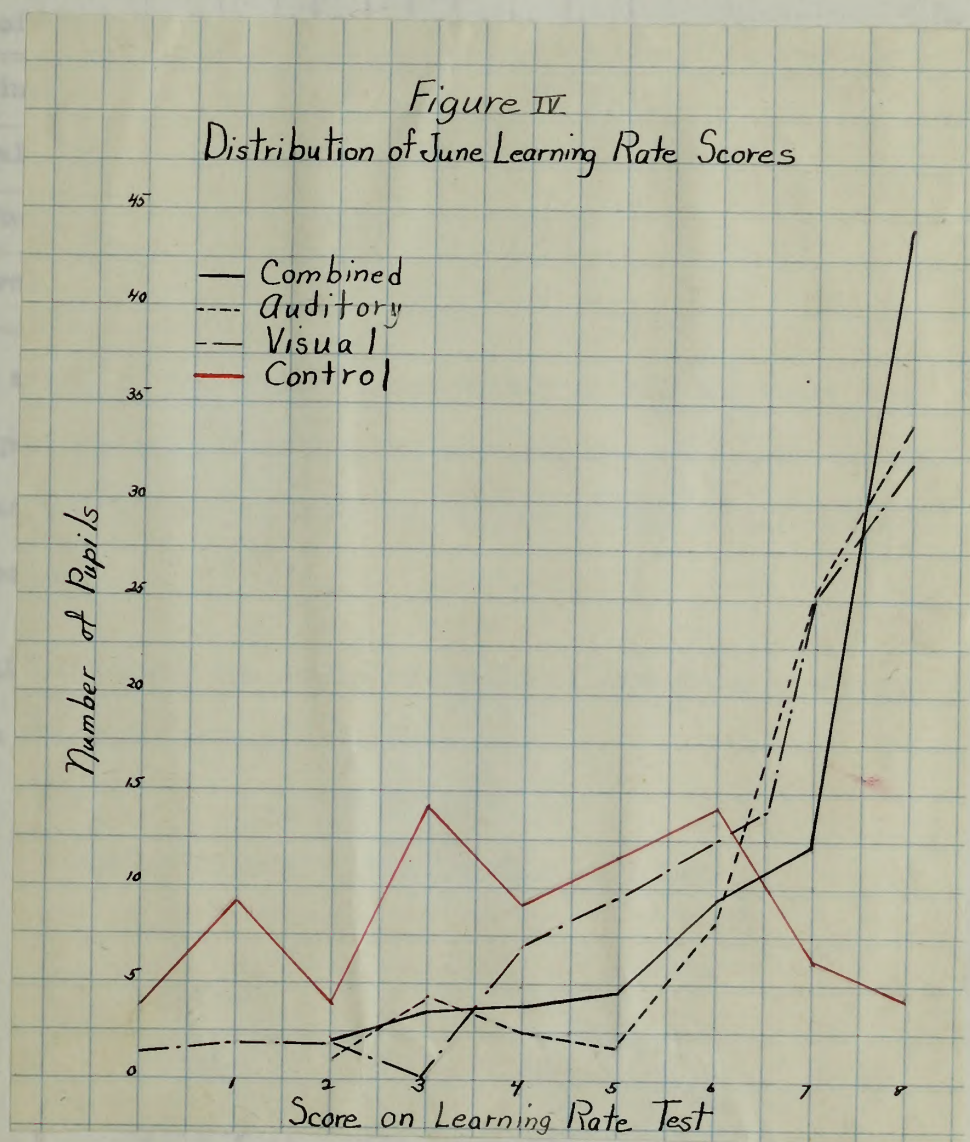 Figure IV
Distribution of June Learning Rate Scores
45
Combined
40
Auditory
Visual
35
Control
30
Number of Pupils
25
20
15
10
5
0
1 2 3 4 5 6 7 8
Score on Learning Rate Test